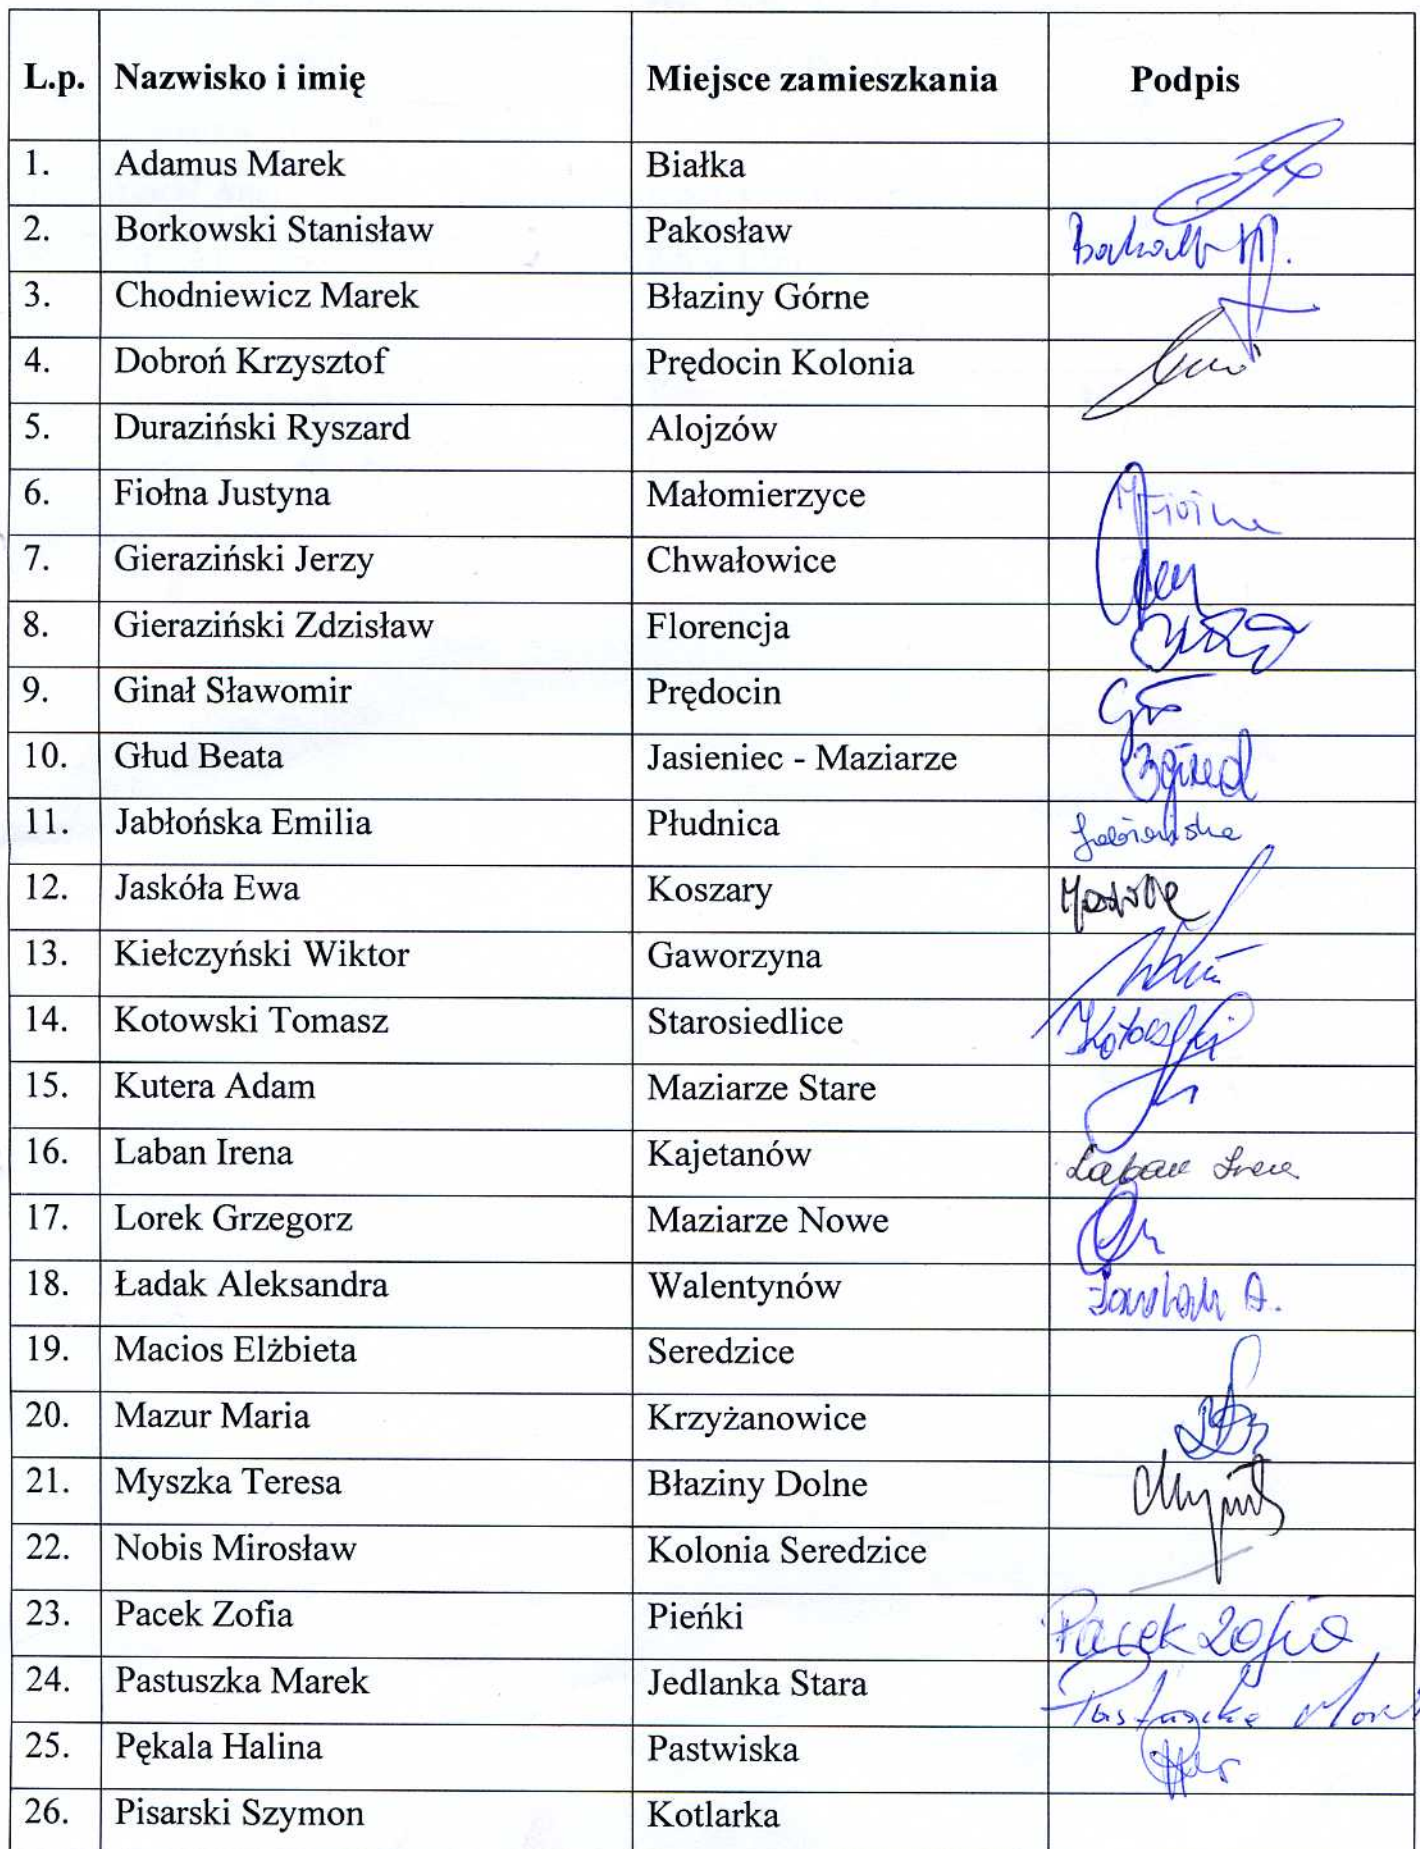 L.p. Nazwisko i imię Miejsce zamieszkania Podpis
1. Adamus Marek Białka
2. Borkowski Stanisław Pakosław
3. Chodniewicz Marek Błaziny Górne
4. Dobroń Krzysztof Prędocin Kolonia
5. Duraziński Ryszard Alojzów
6. Fiołna Justyna Małomierzyce
7. Gieraziński Jerzy Chwałowice
8. Gieraziński Zdzisław Florencja
9. Ginał Sławomir Prędocin
10. Głud Beata Jasieniec - Maziarze
11. Jabłońska Emilia Płudnica
12. Jaskóła Ewa Koszary
13. Kiełczyński Wiktor Gaworzyna
14. Kotowski Tomasz Starosiedlice Kotowski
15. Kutera Adam Maziarze Stare
16. Laban Irena Kajetanów Laban Irena
17. Lorek Grzegorz Maziarze Nowe
18. Ładak Aleksandra Walentynów
19. Macios Elżbieta Seredzice
20. Mazur Maria Krzyżanowice
21. Myszka Teresa Błaziny Dolne
22. Nobis Mirosław Kolonia Seredzice
23. Pacek Zofia Pieńki Pacek Zofia
24. Pastuszka Marek Jedlanka Stara Pastuszka Marek
25. Pękala Halina Pastwiska
26. Pisarski Szymon Kotlarka